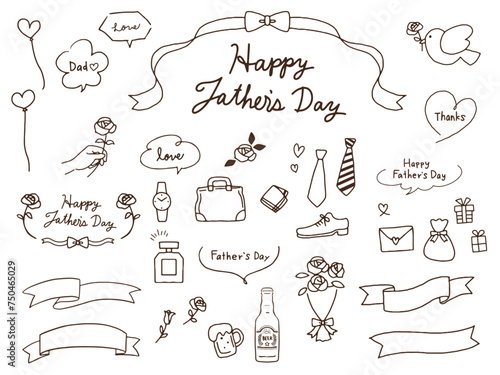 Love
Dad
Happy
Father's Day
Thanks
love
Happy
Father's Day
Happy
Father's Day
Father's Day
BEER
Adobe Stock | #750465029